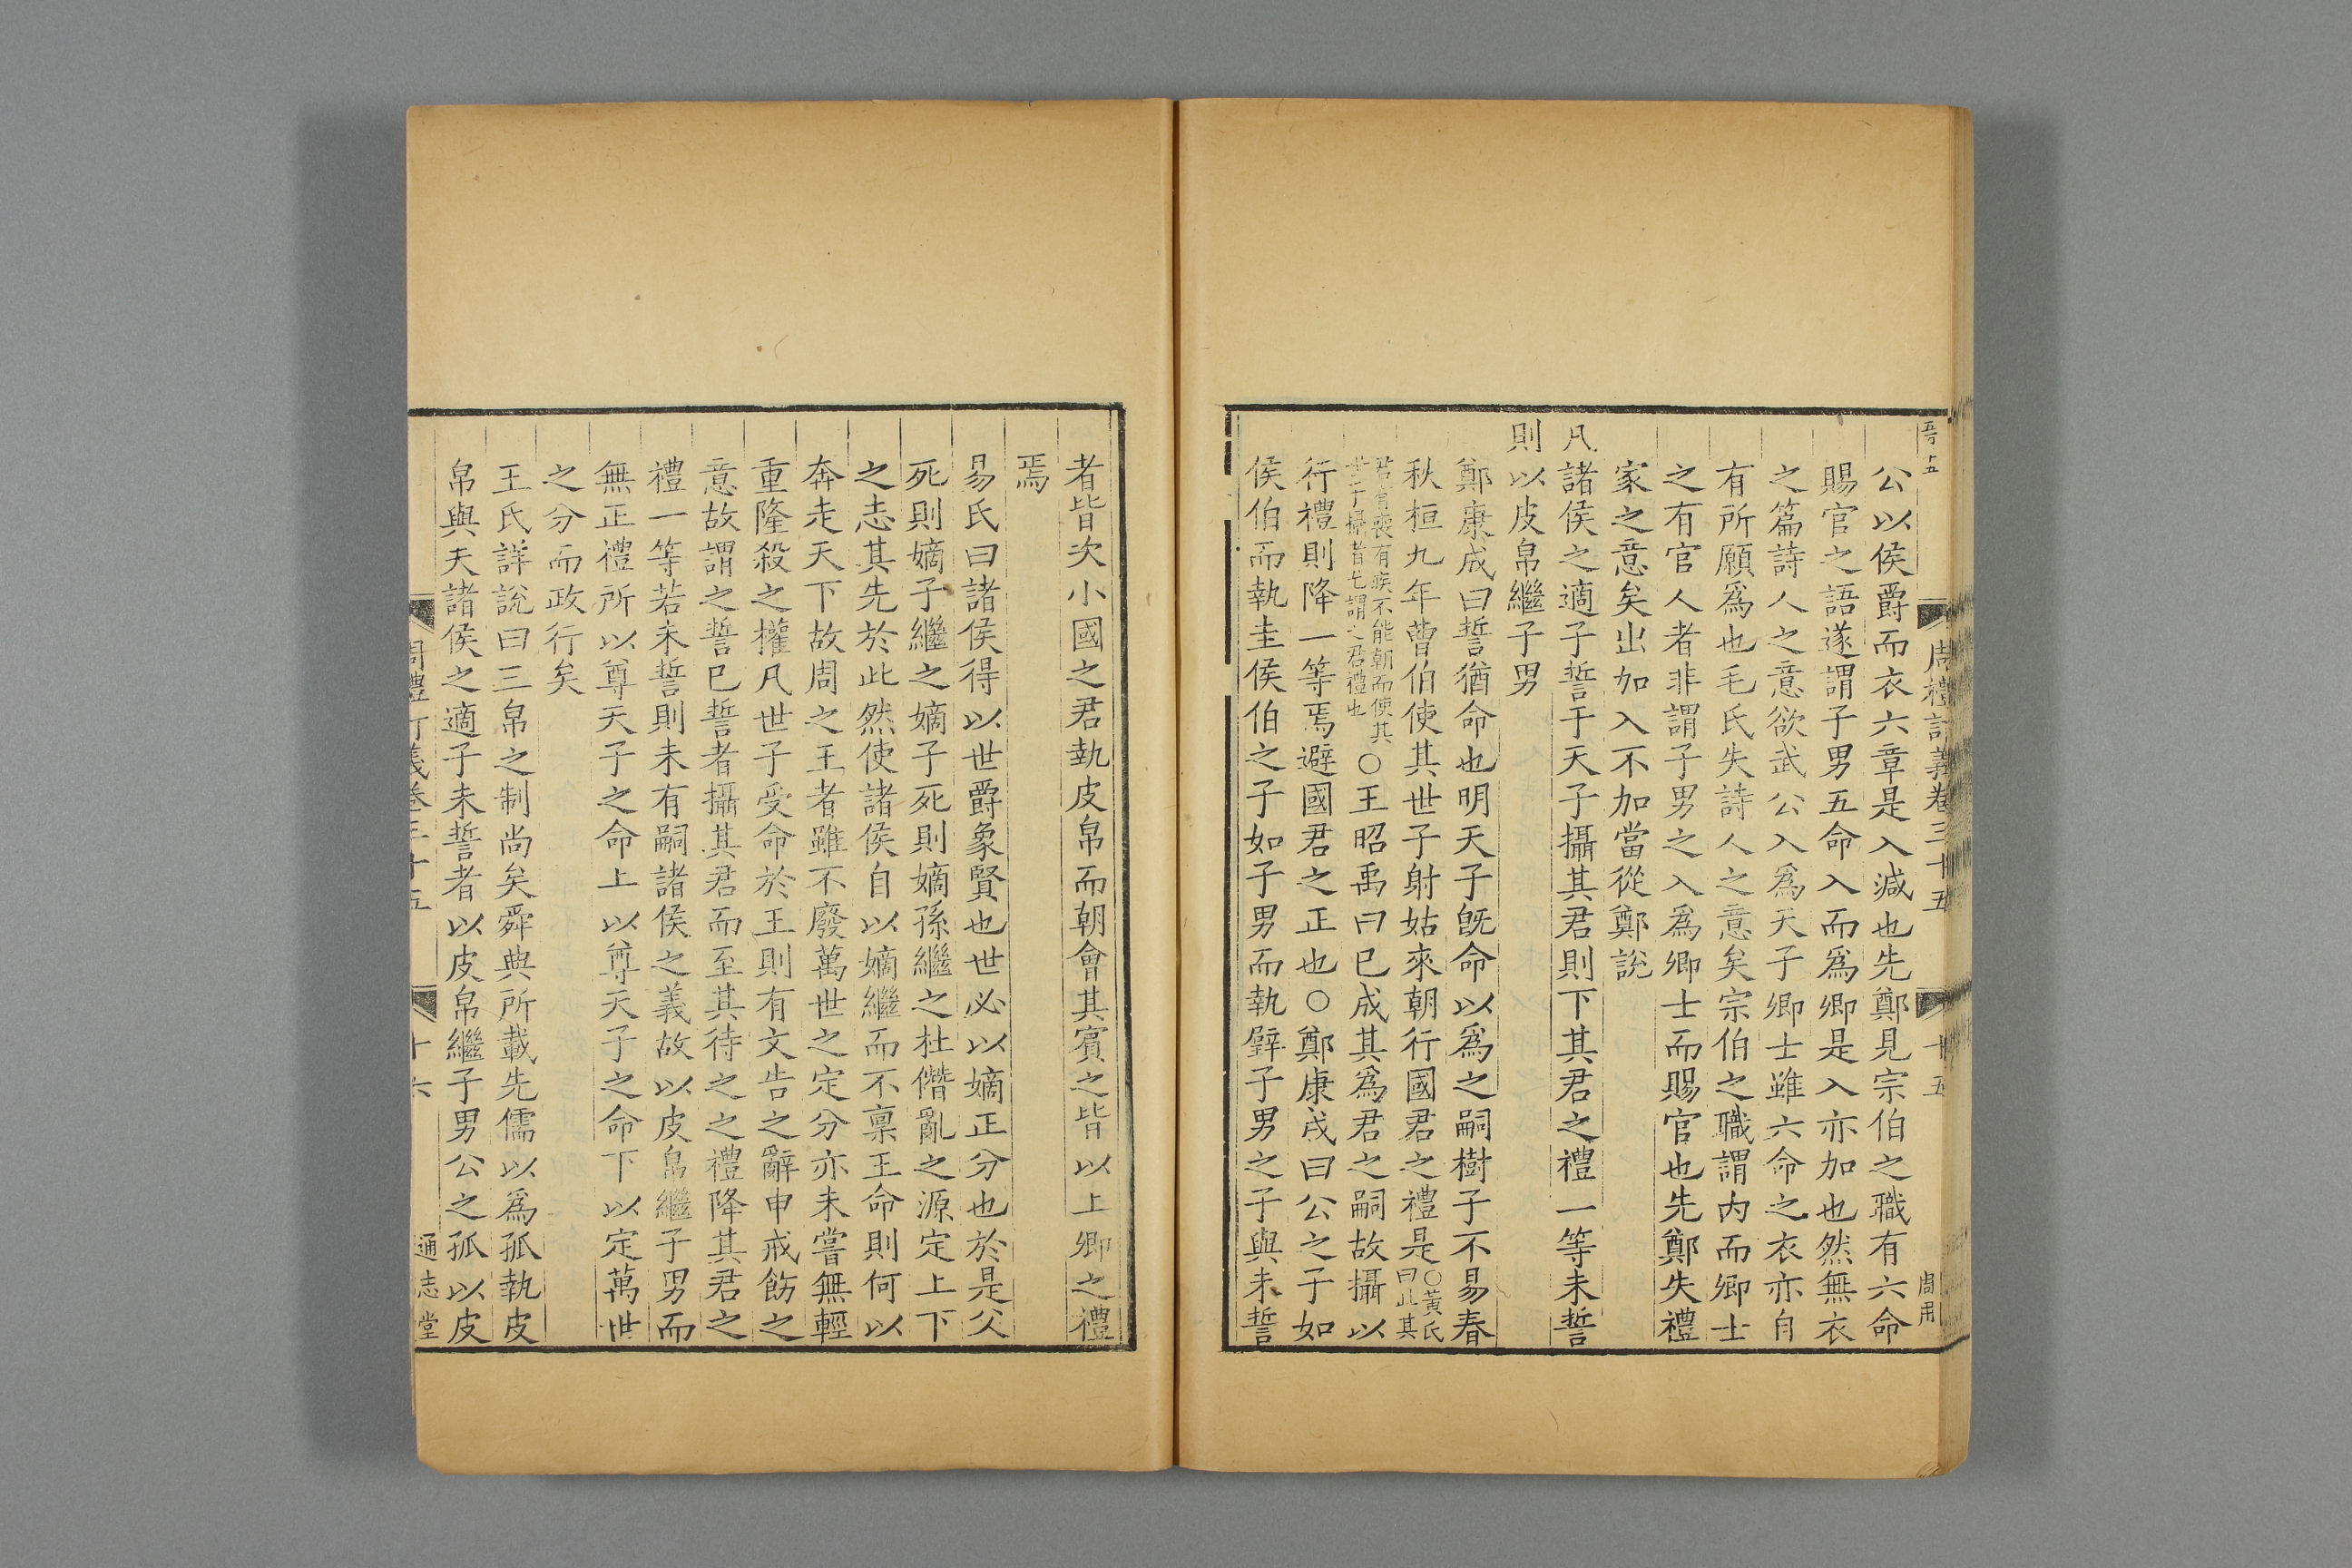 周禮訂義卷三十五
十五
公以侯爵而衣六章是入減也先鄭見宗伯之職有六命
賜官之語遂謂子男五命入而爲卿是入亦加也然無衣
之篇詩人之意欲武公入爲天子卿士雖六命之衣亦自
有所願爲也毛氏失詩人之意矣宗伯之職謂內而卿士
之有官人者非謂子男之入爲卿士而賜官也先鄭失禮
家之意矣出加入不加當從鄭說
凡諸侯之適子誓于天子攝其君則下其君之禮一等未誓
則以皮帛繼子男
鄭康成曰誓猶命也明天子旣命以爲之嗣樹子不易春
秋桓九年曹伯使其世子射姑來朝行國君之禮是○黃氏曰此其
君有喪有疾不能朝而使其世子攝者也謂之君禮也○王昭禹曰已成其爲君之嗣故攝以
行禮則降一等焉避國君之正也○鄭康成曰公之子如
侯伯而執圭侯伯之子如子男而執璧子男之子與未誓
者皆次小國之君執皮帛而朝會其賓之皆以上卿之禮
焉
易氏曰諸侯得以世爵象賢也世必以嫡正分也於是父
死則嫡子繼之嫡子死則嫡孫繼之杜僭亂之源定上下
之志其先於此然使諸侯自以嫡繼而不稟王命則何以
奔走天下故周之王者雖不廢萬世之定分亦未嘗無輕
重隆殺之權凡世子受命於王則有文告之辭申戒飭之
意故謂之誓已誓者攝其君而至其待之之禮降其君之
禮一等若未誓則未有嗣諸侯之義故以皮帛繼子男而
無正禮所以尊天子之命上以尊天子之命下以定萬世
之分而政行矣
王氏詳說曰三帛之制尚矣舜典所載先儒以爲孤執皮
帛與天諸侯之適子未誓者以皮帛繼子男公之孤以皮
周禮訂義卷三十五
十六
通志堂